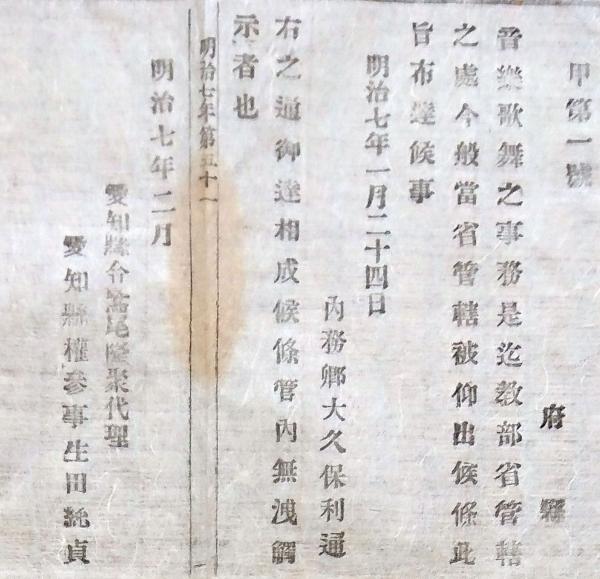 甲第一號
府縣
音樂歌舞之事務是迄敎部省管轄
之處今般當省管轄被仰出候條此
旨布達候事
明治七年一月二十四日
內務卿大久保利通
右之通御達相成候條管內無洩觸
示者也
明治七年第五十一
明治七年二月
愛知縣令鷲尾隆聚代理
愛知縣權參事生田純貞